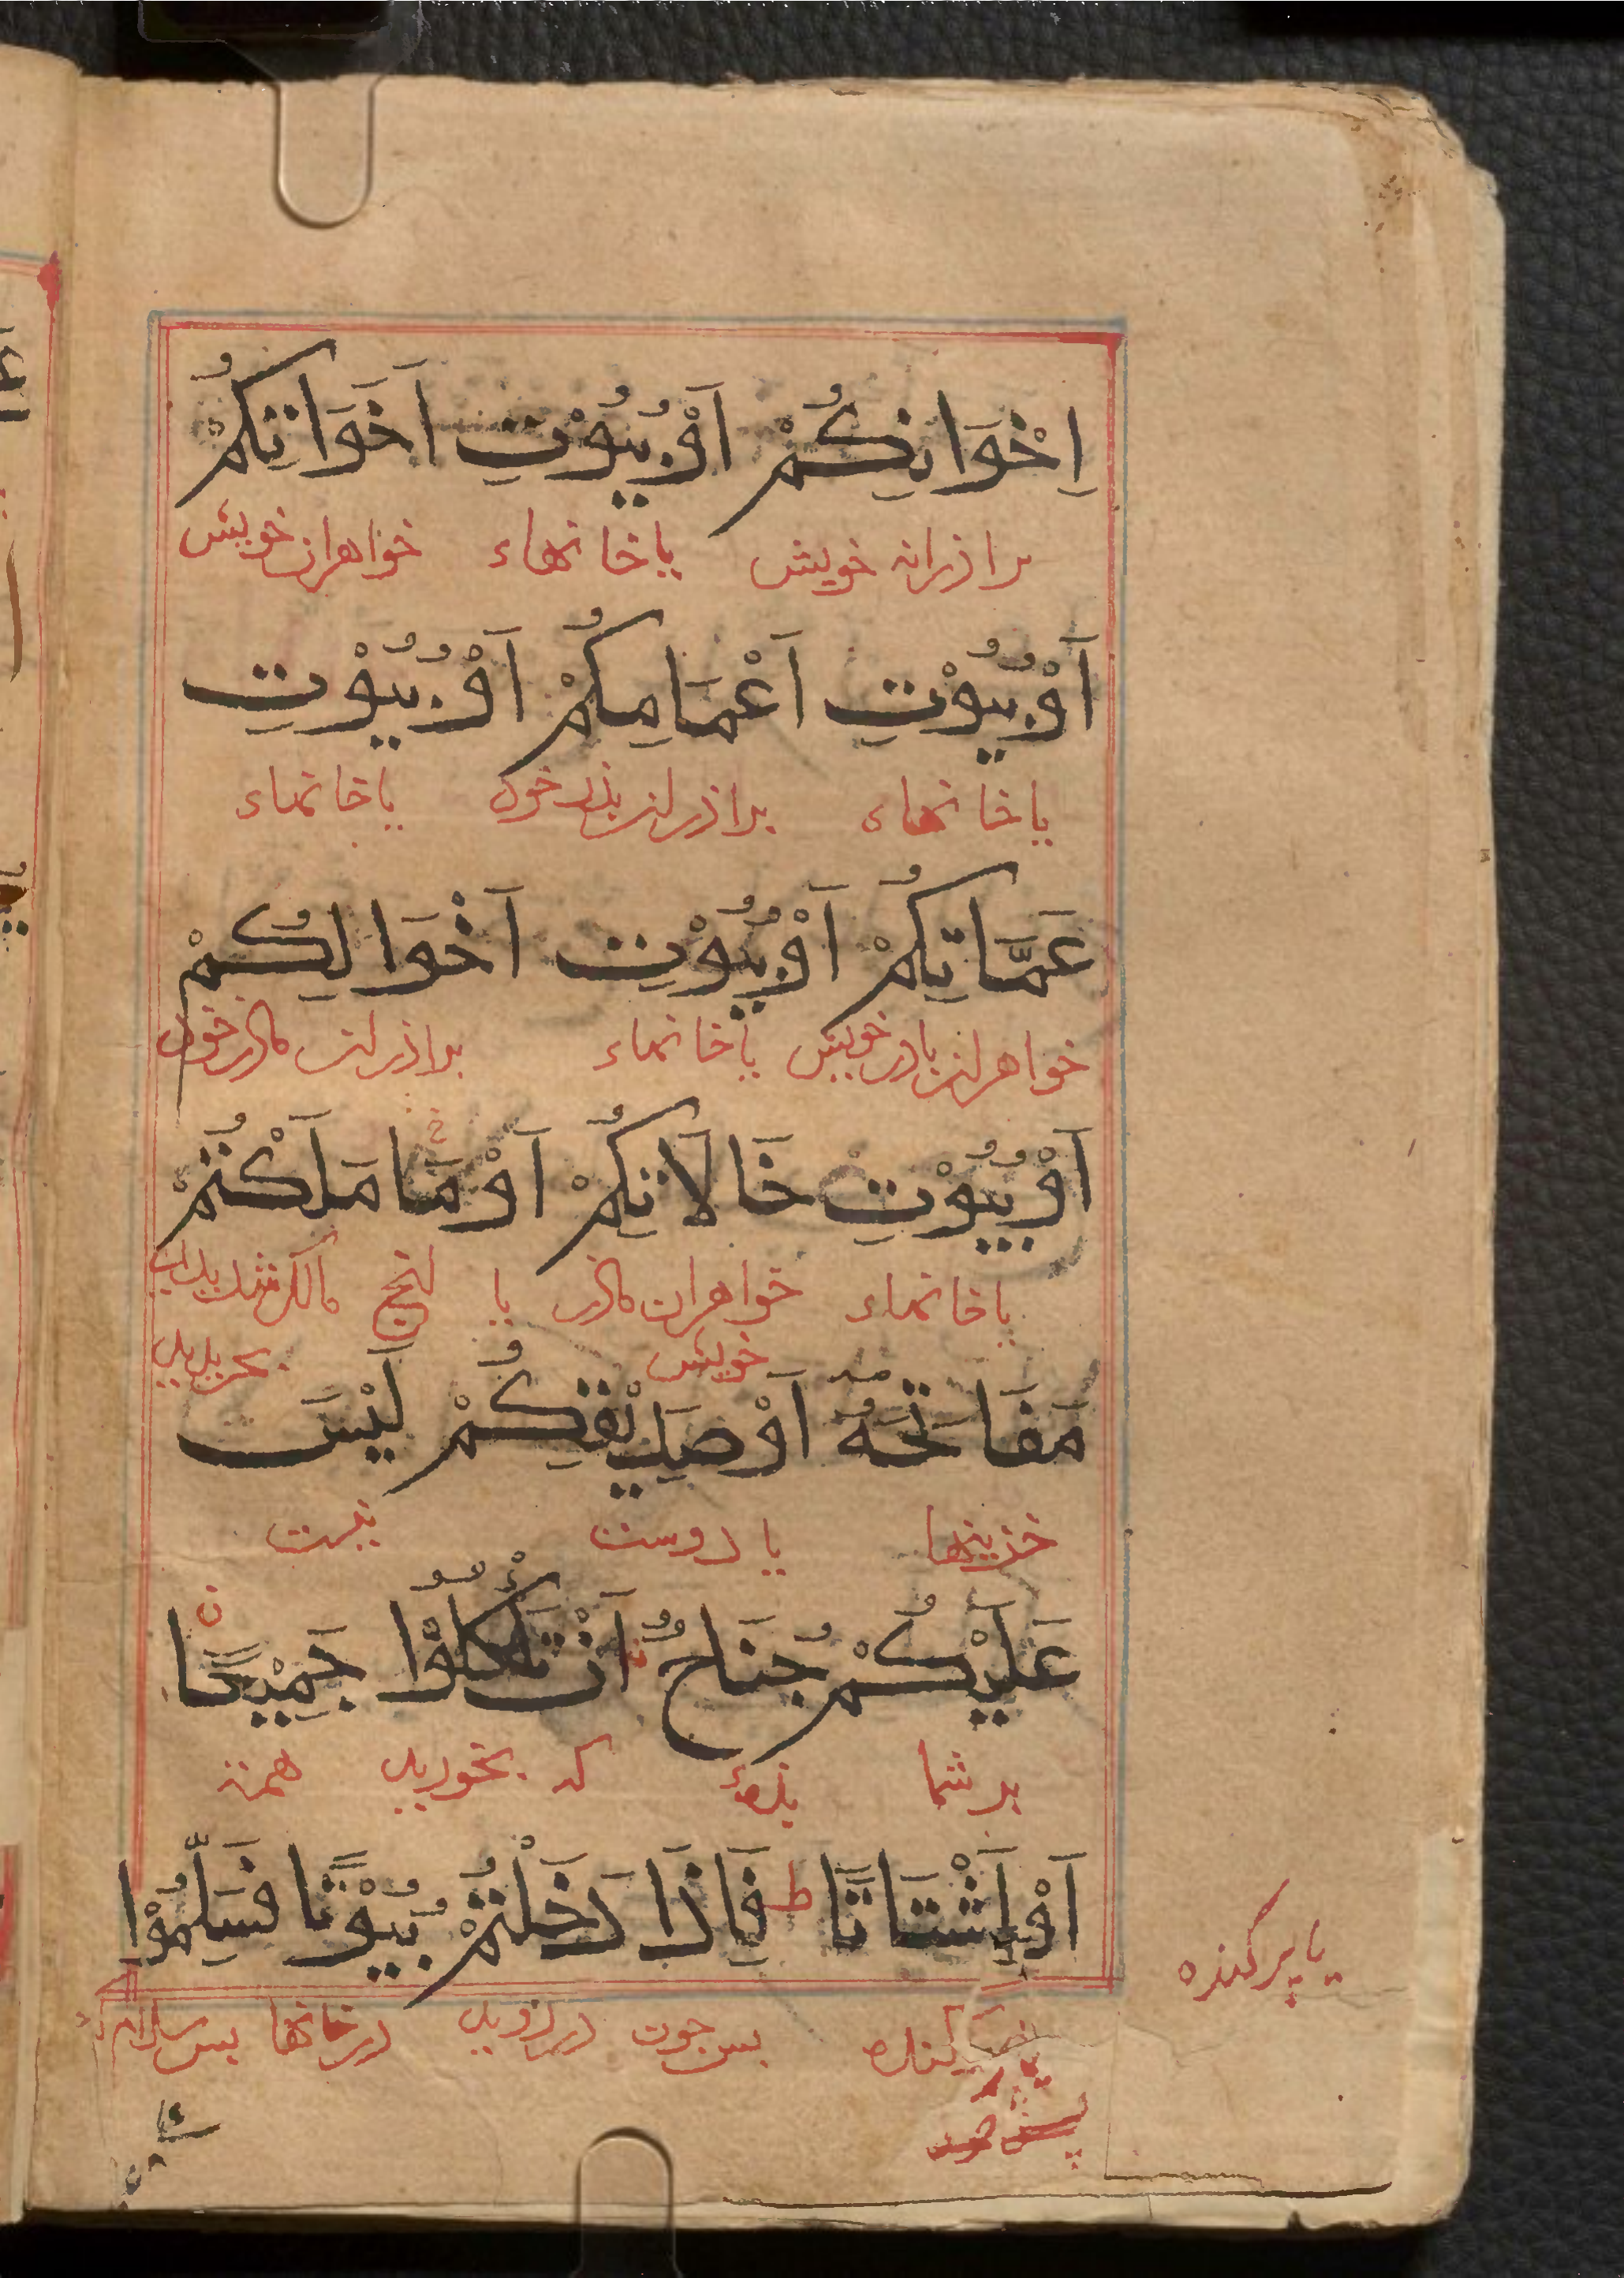 اِخْوَانِكُمْ اَوْ بُيُوْتِ اَخَوَاتِكُمْ
براذران خویش یا خانهاء خواهران خویش
اَوْ بُيُوْتِ اَعْمَامِكُمْ اَوْ بُيُوْتِ
یا خانهاء براذران پذر خوذ یا خانهاء
عَمَّاتِكُمْ اَوْ بُيُوْتِ اَخْوَالِكُمْ
خواهران پاذر خویش یا خانهاء براذران ماذر خوذ
اَوْ بُيُوْتِ خَالَاتِكُمْ اَوْ مَا مَلَكْتُمْ
یا خانهاء خواهران ماذر یا انج مالک شدید
خویش
مَفَاتِحَهُ اَوْ صَدِيْقِكُمْ لَيْسَ
خزینها یا دوست نیست
عَلَيْكُمْ جُنَاحٌ اَنْ تَأْكُلُوْا جَمِيْعًا
بر شما بزهٔ که بخورید همه
اَوْ اَشْتَاتًا ط فَاِذَا دَخَلْتُمْ بُيُوْتًا فَسَلِّمُوْا
یا پرکنده
کنده پس چون در روید در خانها پس سلام